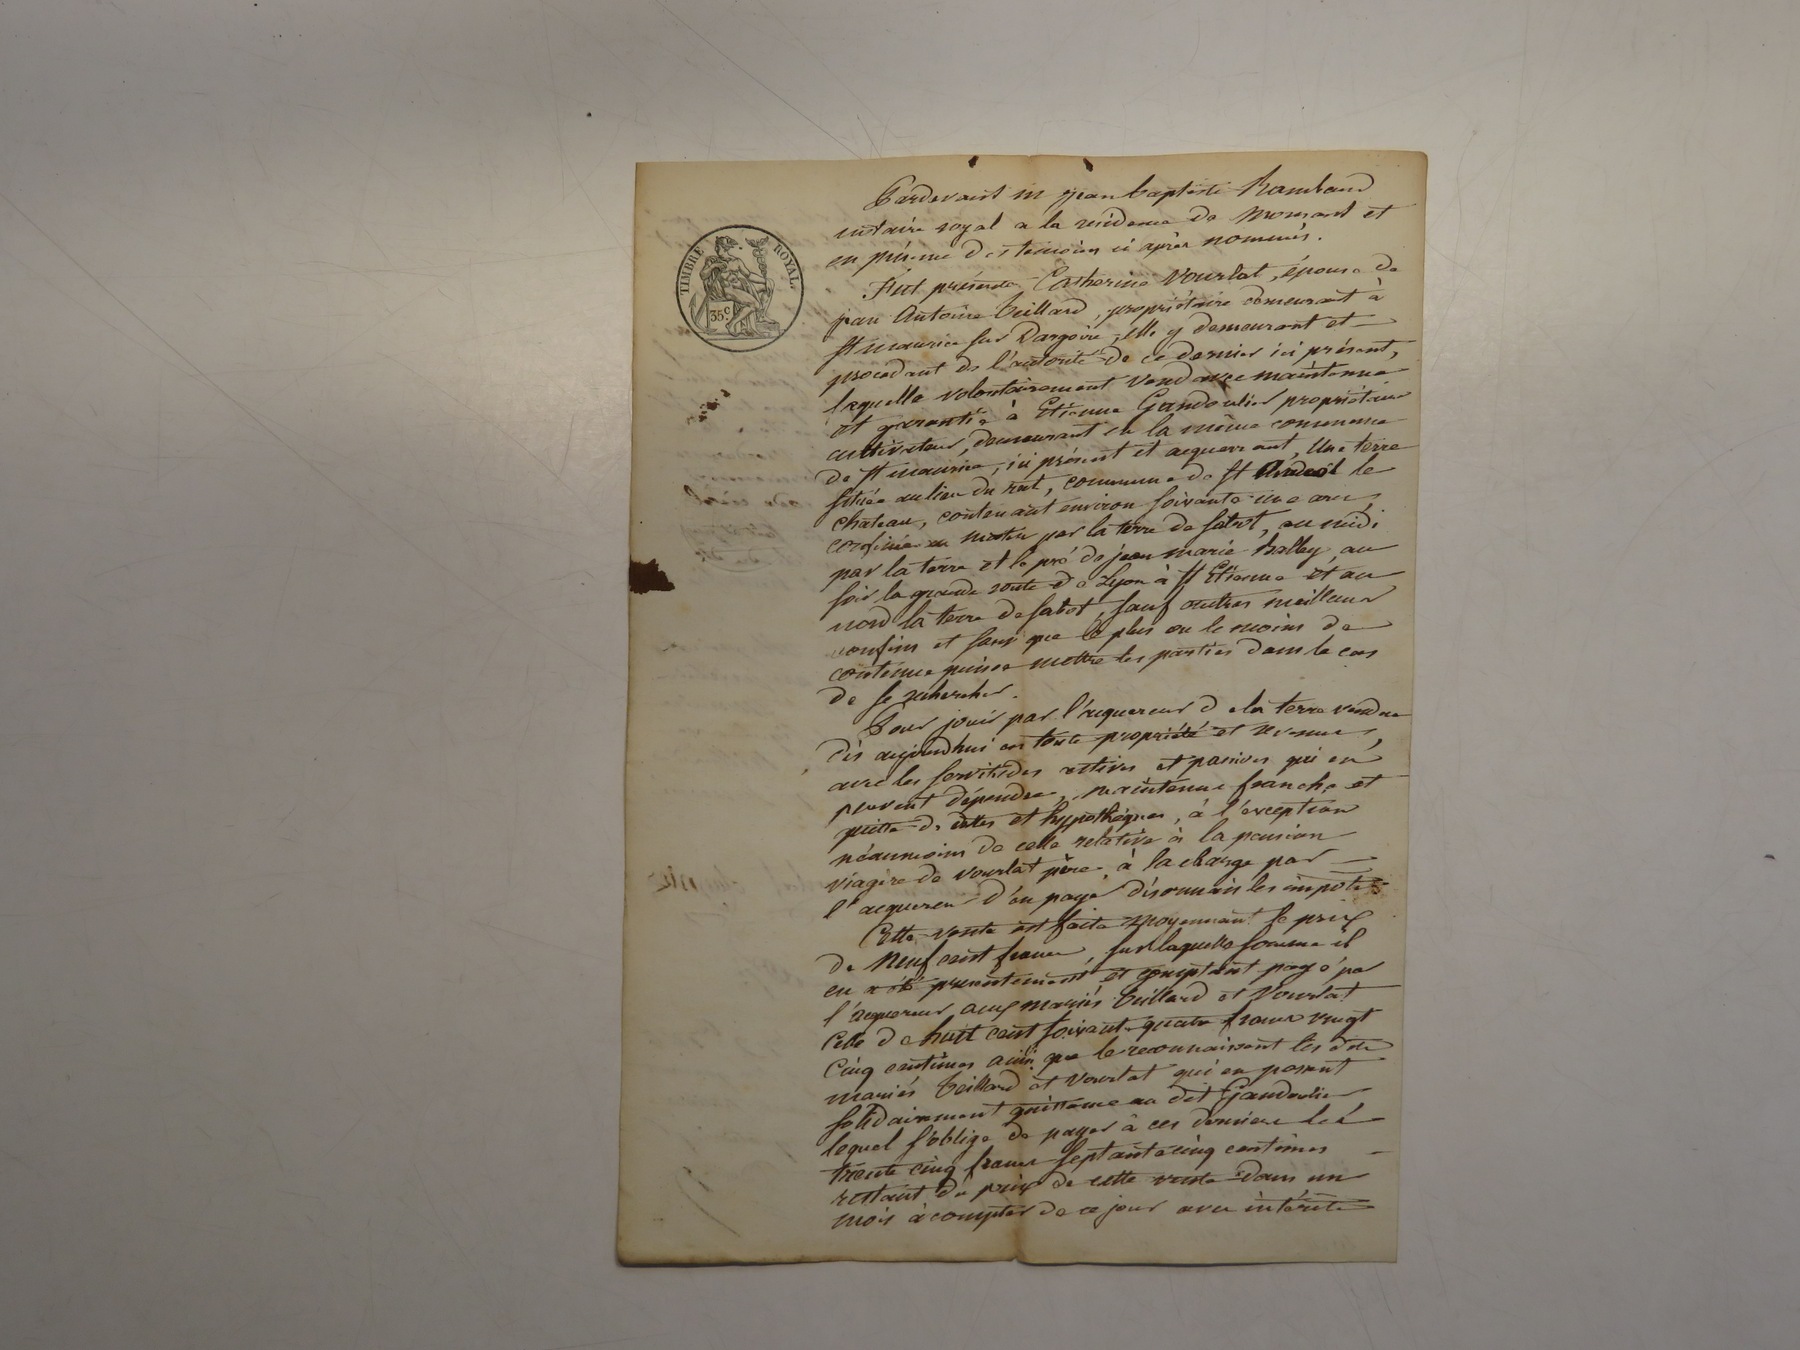 TIMBRE ROYAL.
35 c.
Pardevant Me jean baptiste Rambaud
notaire royal a la residence de Mornant et
en présence des temoins ci après nommés.
Fut présente Catherine Vourlat, épouse de
jean Antoine Teillard, propriétaire demeurant à
St maurice sur Dargoire, elle y demeurant et
procedant de l'autorité de ce dernier ici présent,
laquelle volontairement vend avec maintenue
et garantie à Etienne Gandoulier propriétaire
cultivateur, demeurant en la même commune
de St maurice, ici présent et acquerrant, une terre
située au lieu du rat, commune de St Andeol le
chateau, contenant environ soixante une ares,
confinée au matin par la terre de fabot, au midi
par la terre et le pré de jean marie balley au
soir la grande route de Lyon à St Etienne et au
nord la terre de fabot, sauf autres meilleurs
confins et sans que le plus ou le moins de
contenue puisse mettre les parties dans le cas
de se rechercher.
Pour jouir par l'acquereur de la terre vendue
dès aujourdhui en toute propriété et revenus,
avec les servitudes actives et passives qui en
peuvent dépendre, maintenue franche et
quitte de dettes et hypothèques, à l'exception
néanmoins de celle relative à la pension
viagère de Vourlat père, à la charge par
l'acquereur d'en payer désormais les impots
Cette vente est faite moyennant le prix
de Neuf cent francs, sur laquelle somme il
en a été présentement et comptant payé par
l'acquereur aux mariés Teillard et Vourlat
celle de huit cent soixante quatre francs vingt
cinq centimes ainsi que le reconnaissent les dits
mariés Teillard et Vourlat qui en passent
solidairement quittance au dit Gandoulier
lequel s'oblige de payer à ces derniers les
trente cinq francs septante cinq centimes
restant du prix de cette vente dans un
mois à compter de ce jour avec intérêts